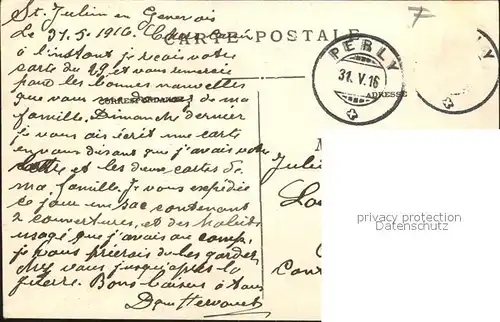 St. Julien en Genevois
Le 31.5.1916. Cher
CARTE POSTALE
à l'instant je reçois votre
carte du 29 et vous remercie
pour les bonnes nouvelles
que vous me de ma
CORRESPONDANCE
famille. Dimanche dernier
je vous ai écrit une carte
en vous disant que j'avais votre
lettre et les deux cartes de
ma famille. Je vous expédie
ce jour un sac contenant
2 couvertures, et des habits
usagé que j'avais au camp,
je vous prierais de les garder
chez vous jusqu'après la
guerre. Bons baisers à tous
PERLY
31.V.16
ADRESSE
7
Y
privacy protection
Datenschutz